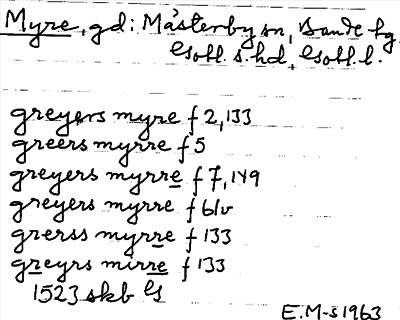 Myre, gd: Mästerby sn, Bande hg
Gotl. s. hd, Gotl. l.
greyers myre f 2, 133
greers myrre f 5
greyers myrre f 7, 149
greyers myrre f 61v
grerss myrre f 133
greyrs mirre f 133
1523 skb G
E.M-s 1963